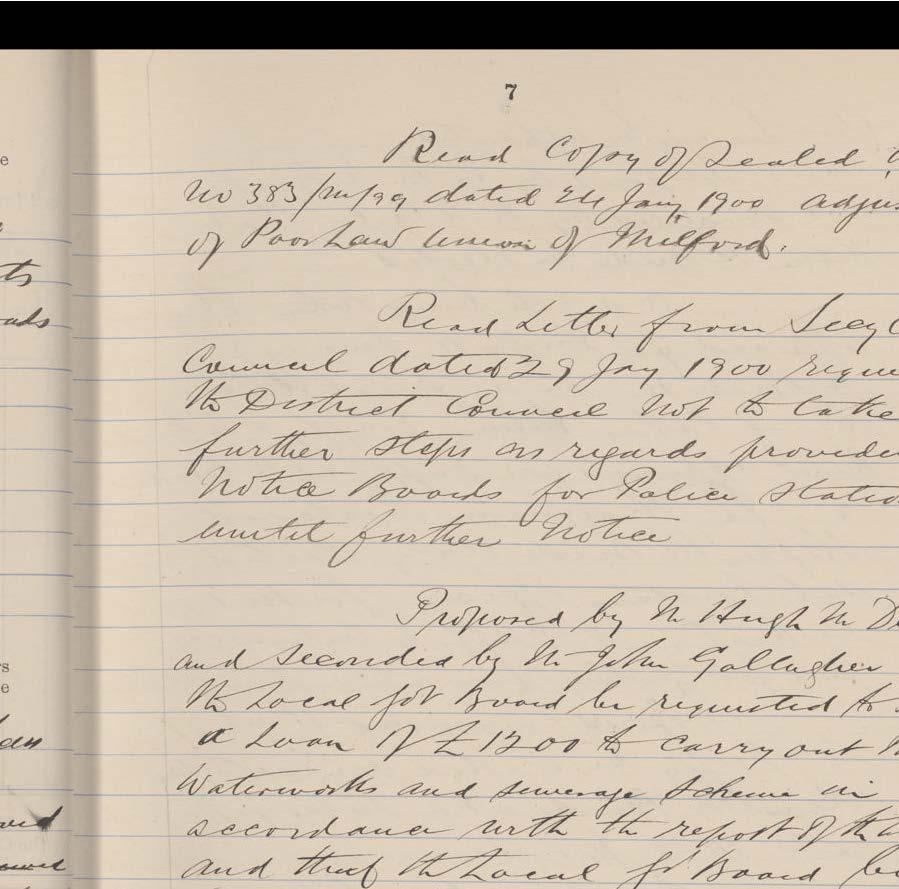 7
Read Copy of Sealed
No 383/M/99 dated 24 Jany 1900 adjus
of Poor Law Union of Milford.
Read Letter from Secy C
Council dated 29 Jay 1900 reque
the District Council not to take
further steps as regards provide
Notice Boards for Police Statio
until further Notice
Proposed by Mr Hugh Mc De
and seconded by Mr John Gallagher
the Local Govt Board be requested to
a Loan of £1200 to carry out
Waterworks and sewerage scheme in
accordance with the report of the
and that the Local Govt Board be
e
ts
ads
rs
e